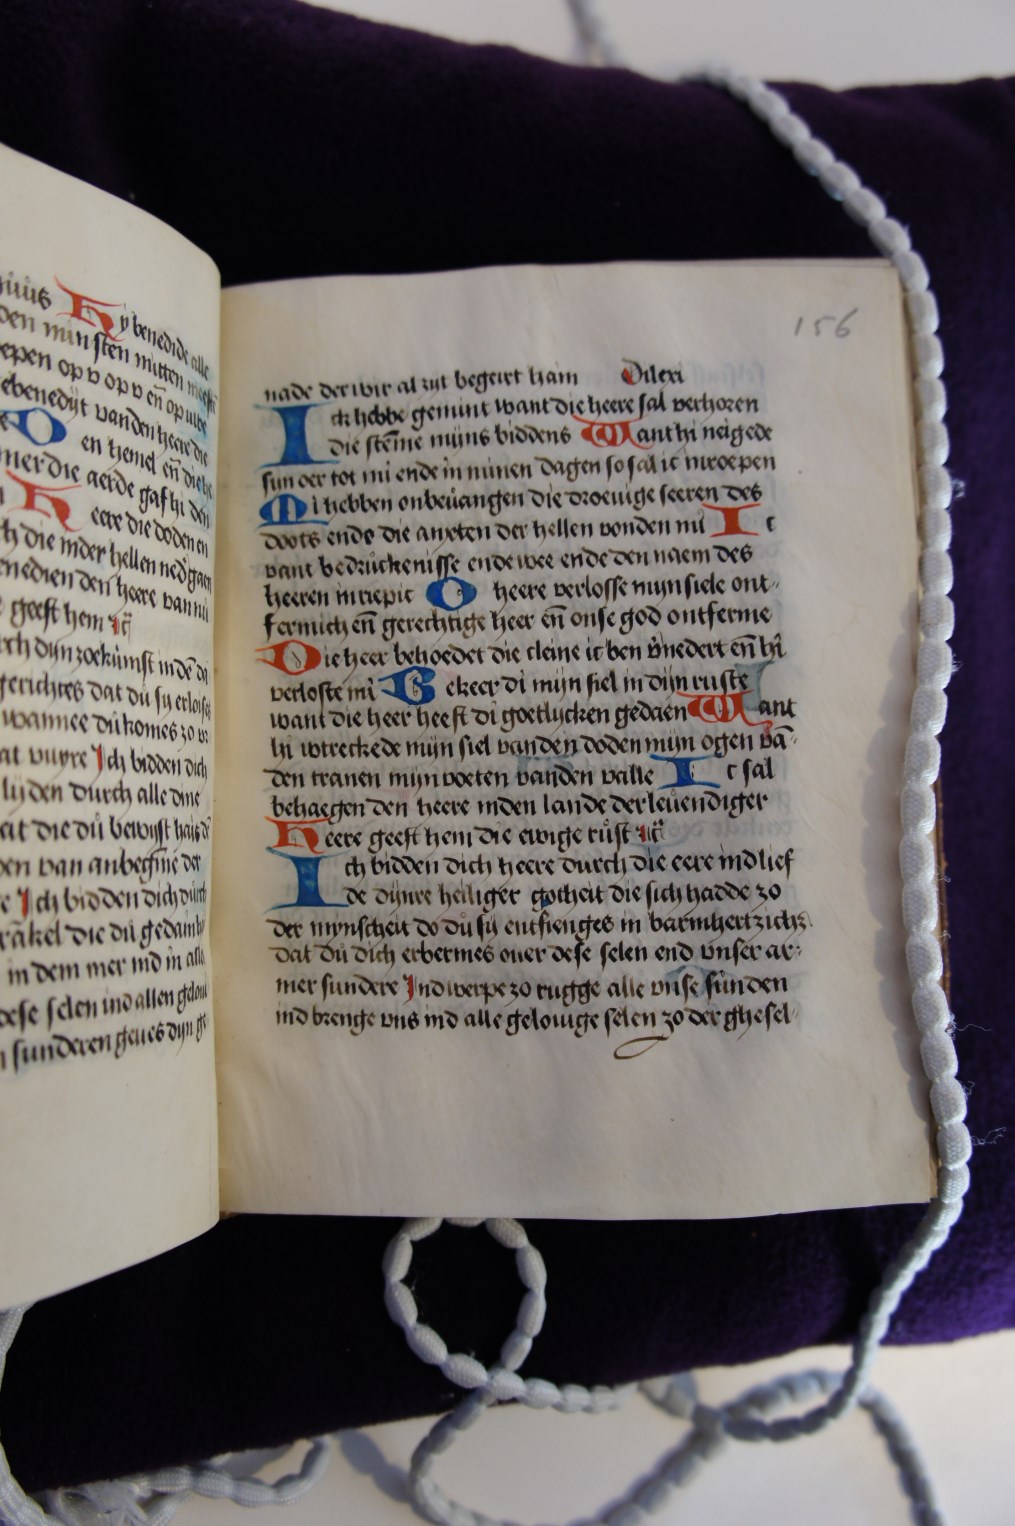 giüüs Hy benedide alle
den minsten mitten meesten
epen op v op v eñ op uwe
ebenedijt vanden heere die
O en hemel eñ die he
mer die aerde gaf hi den
Heere die doden en
ch die inder hellen ned gaen
enedien den heere van nu
geeft hem
rch dijn zoekůmst in de da
gerichtes dat dů sy erloises
wannee dů komes zo v
at vuyre Ich bidden dich
lijden durch alle dine
eit die dů bewijst hais
en van anbegine der
e Ich bidden dich durch
rakel die dů gedain
in dem mer ind in alle
dese selen ind allen gelou
n sunderen geues dijn ge
156
nade der wir al zijt begeirt hain Dilexi
Ick hebbe gemint want die heere sal verhoren
die stēme mijns biddens Want hi neigede
sijn oer tot mi ende in minen dagen so sal ic inroepen
Mi hebben onbeůangen die droeuige seeren des
doots ende die anxten der hellen vonden mi Ic
vant bedrůckenisse ende wee ende den naem des
heeren inriepic O heere verlosse mijn siele ont-
fermich eñ gerechtige heer eñ onse god ontferme
Die heer behoedet die cleine ic ben v̄nedert eñ hi
verloste mi Bekeer di mijn siel in dijn ruste
want die heer heeft di goetlijcken gedaen Want
hi wtreckede mijn siel vanden doden mijn ogen vā-
den tranen mijn voeten vanden valle Ic sal
behaegen den heere inden lande der leůendiger
Heere geeft hem die ewige růst
Ich bidden dich heere durch die eere ind lief
de dijnre heiliger gotheit die sich hadde zo
der mynscheit do dů sij entfienges in barmhertzich
dat dů dich erbermes ouer dese selen end vnser ar-
mer sundere Ind werpe zo rugge alle vnse sůnden
ind brenge vns ind alle gelouige selen zo der ghesel-